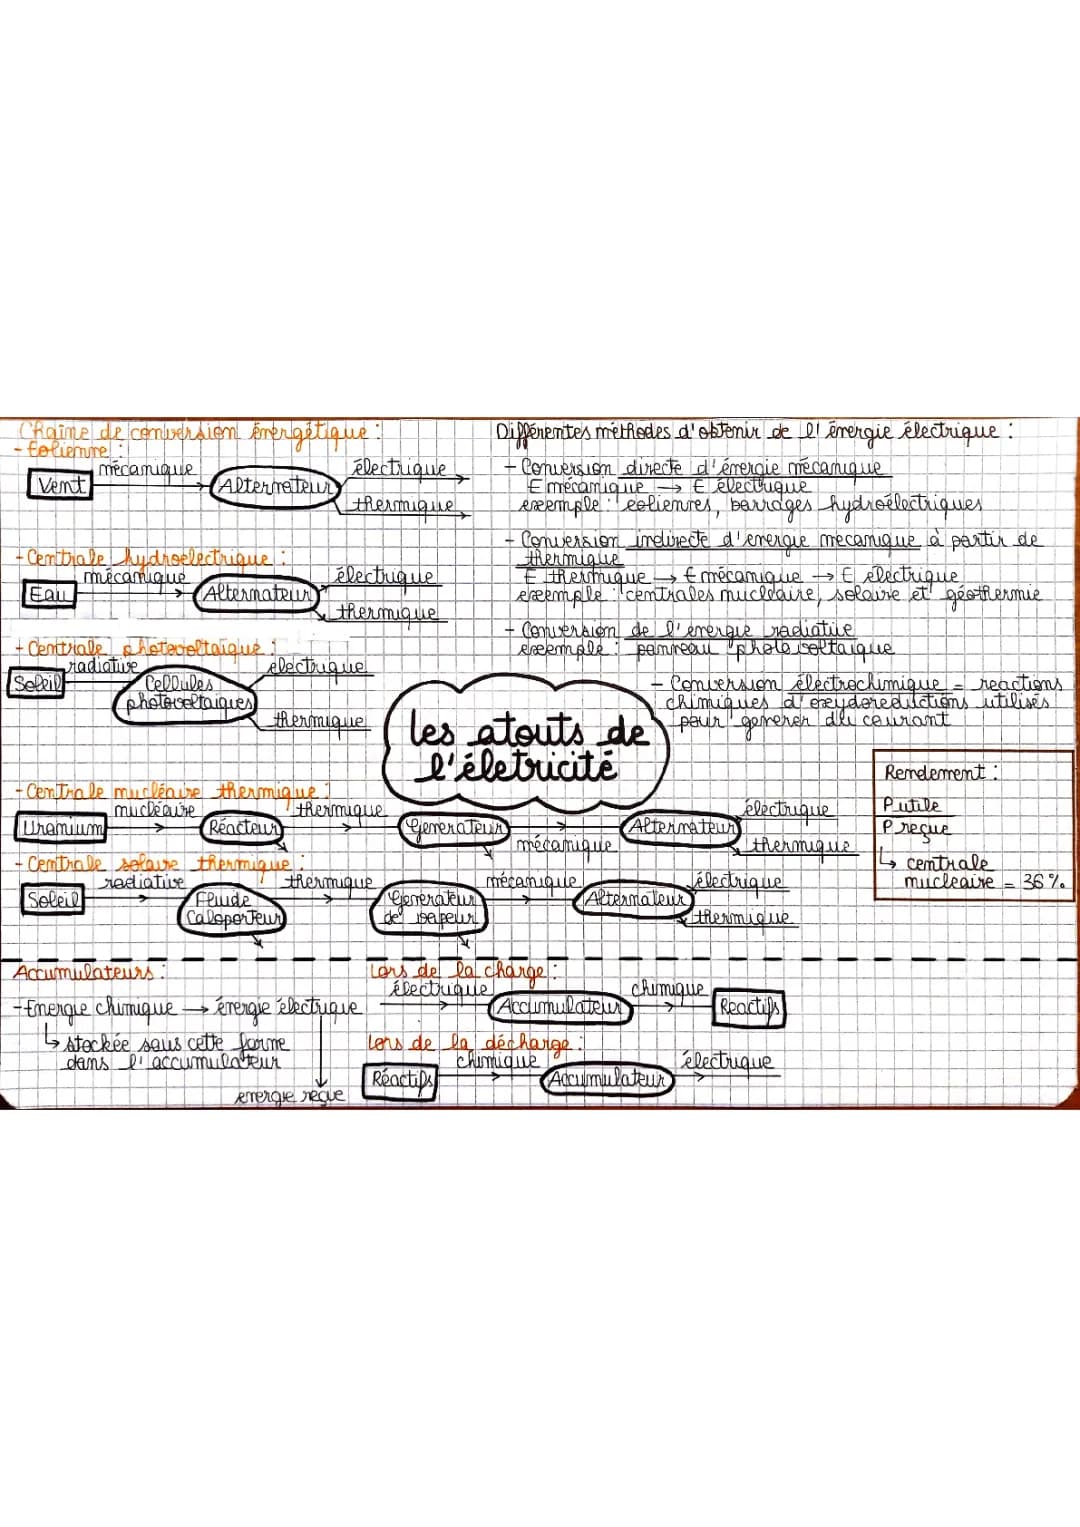 Chaîne de conversion énergétique :
- Eolienne :
Vent
mécanique
Alternateur
électrique
thermique
- Centrale hydroelectrique :
Eau
mécanique
Alternateur
électrique
thermique
- Centrale photovoltaïque :
Soleil
radiative
Cellules
photovoltaiques
electrique
thermique
- Centrale nucléaire thermique :
Uranium
nucléaire
Réacteur
thermique
Generateur
mécanique
Alternateur
électrique
thermique
- Centrale solaire thermique :
Soleil
radiative
Fluide
Caloporteur
thermique
Generateur
de vapeur
mécanique
Alternateur
électrique
thermique
Différentes méthodes d'obtenir de l'énergie électrique :
- Conversion directe d'énergie mécanique
E mécanique → E électrique
exemple : eoliennes, barrages hydroélectriques
- Conversion indirecte d'energie mécanique à partir de
thermique
E thermique → E mécanique → E électrique
exemple : centrales nucléaire, solaire et géothermie
- Conversion de l'energie radiative
exemple : panneau photovoltaïque
- Conversion électrochimique = reactions
chimiques d'oxydoreductions utilisés
pour generer du courant
les atouts de
l'életricité
Rendement :
P utile
P reçue
↳ centrale
nucleaire = 36 %.
Accumulateurs :
- Energie chimique → énergie électrique
↳ stockée sous cette forme
dans l'accumulateur
energie reçue
Lors de la charge :
électrique
Accumulateur
chimique
Reactifs
Lors de la décharge :
Réactifs
chimique
Accumulateur
électrique